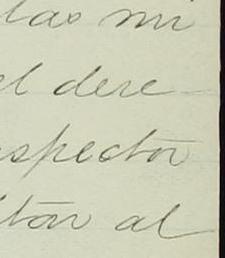 las mi
el dere
spector
itar al